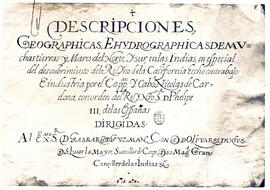 DESCRIPCIONES
GEOGRAPHICAS, E HYDROGRAPHICAS DE MU
chas tierras y Mares del Norte, y Sur, en las Indias, en especial
del descubrimiento del Reino de la California hecho con trabajo
E industria por el Capp.n y Cabo Nicolas de Car
dona, con orden del Rey N.S. D. Phelipe
III. de las Españas
DIRIGIDAS
D. GASPAR DE GUZMAN, CONDE DE OLIVARES, DUQUE
de S. Lucar la Mayor, Sumiller de Corps, Gran
Canciller de las Indias &c.